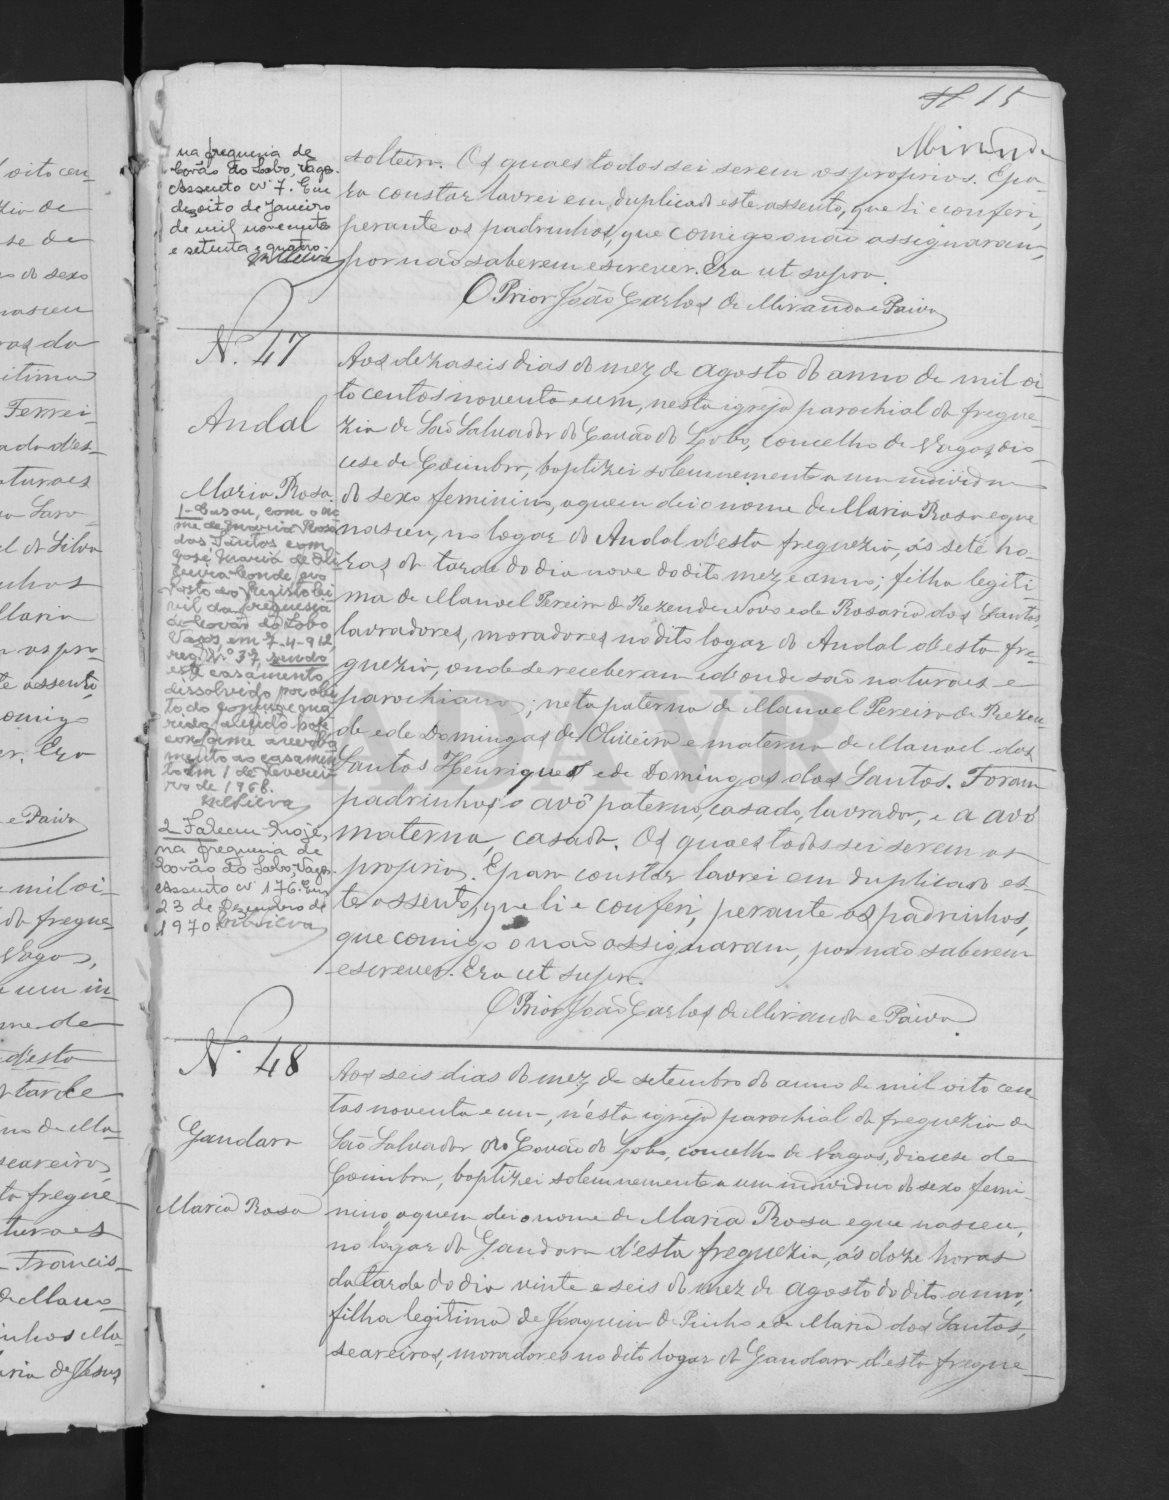 15
Miranda
na freguesia de
Covão do Lobo, Vagos.
Assento nº 7. Em
dezoito de Janeiro
de mil novecentos
e setenta e quatro.
solteira. Os quaes todos sei serem os proprios. E pa-
ra constar lavrei em duplicado este assento, que li e conferi,
perante os padrinhos, que comigo o não assignaram,
por não saberem escrever. Era ut supra.
O Prior João Carlos de Miranda e Paiva
N.º 47
Andal
Maria Rosa
1- Casou, com o no
me de Maria Rosa
dos Santos com
José Maria de Oli
veira Conde, no
Posto do Registo Ci
vil da freguesia
de Covão do Lobo
Vagos, em 7-4-912,
reg. Nº 37, sendo
este casamento
dissolvido por obi
to do conjuge ma
rido, alludo hoje
conforme averba
mento ao casamen
to. Em 1 de Feverei
ro de 1968.
2 Faleceu hoje,
na freguesia de
Covão do Lobo, Vagos.
Assento nº 176. Em
23 de Dezembro de
1970.
Aos dezaseis dias do mez de agosto do anno de mil oi-
to centos noventa e um, nesta igreja parochial da fregue-
zia de São Salvador do Covão do Lobo, concelho de Vagos, dio-
cese de Coimbra, baptizei solemnemente a um individuo
do sexo feminino, a quem dei o nome de Maria Rosa e que
nasceu, no logar do Andal d'esta freguezia, ás sete ho-
ras da tarde do dia nove do dito mez e anno; filha legiti-
ma de Manoel Pereira de Rezende Novo e de Rosaria dos Santos
lavradores, moradores no dito logar do Andal d'esta fre-
guezia, onde se receberam e d'onde são naturaes e
parochianos; neta paterna de Manoel Pereira de Rezen-
de e de Domingas de Oliveira e materna de Manoel dos
Santos Henriques e de Domingas dos Santos. Foram
padrinhos o avô paterno, casado, lavrador, e a avó
materna, casada. Os quaes todos sei serem os
proprios. E para constar lavrei em duplicado es-
te assento, que li e conferi, perante os padrinhos,
que comigo o não assignaram, por não saberem
escrever. Era ut supra.
O Prior João Carlos de Miranda e Paiva
N.º 48
Gandara
Maria Rosa
Aos seis dias do mez de setembro do anno de mil oito cen-
tos noventa e um, n'esta igreja parochial da freguezia de
São Salvador do Covão do Lobo, concelho de Vagos, diocese de
Coimbra, baptizei solemnemente a um individuo do sexo femi-
nino, a quem dei o nome de Maria Rosa e que nasceu,
no logar da Gandara d'esta freguezia, ás doze horas
da tarde do dia vinte e seis do mez de agosto do dito anno;
filha legitima de Joaquim de Pinho e de Maria dos Santos,
seareiros, moradores no dito logar da Gandara d'esta fregue-
ADAVR